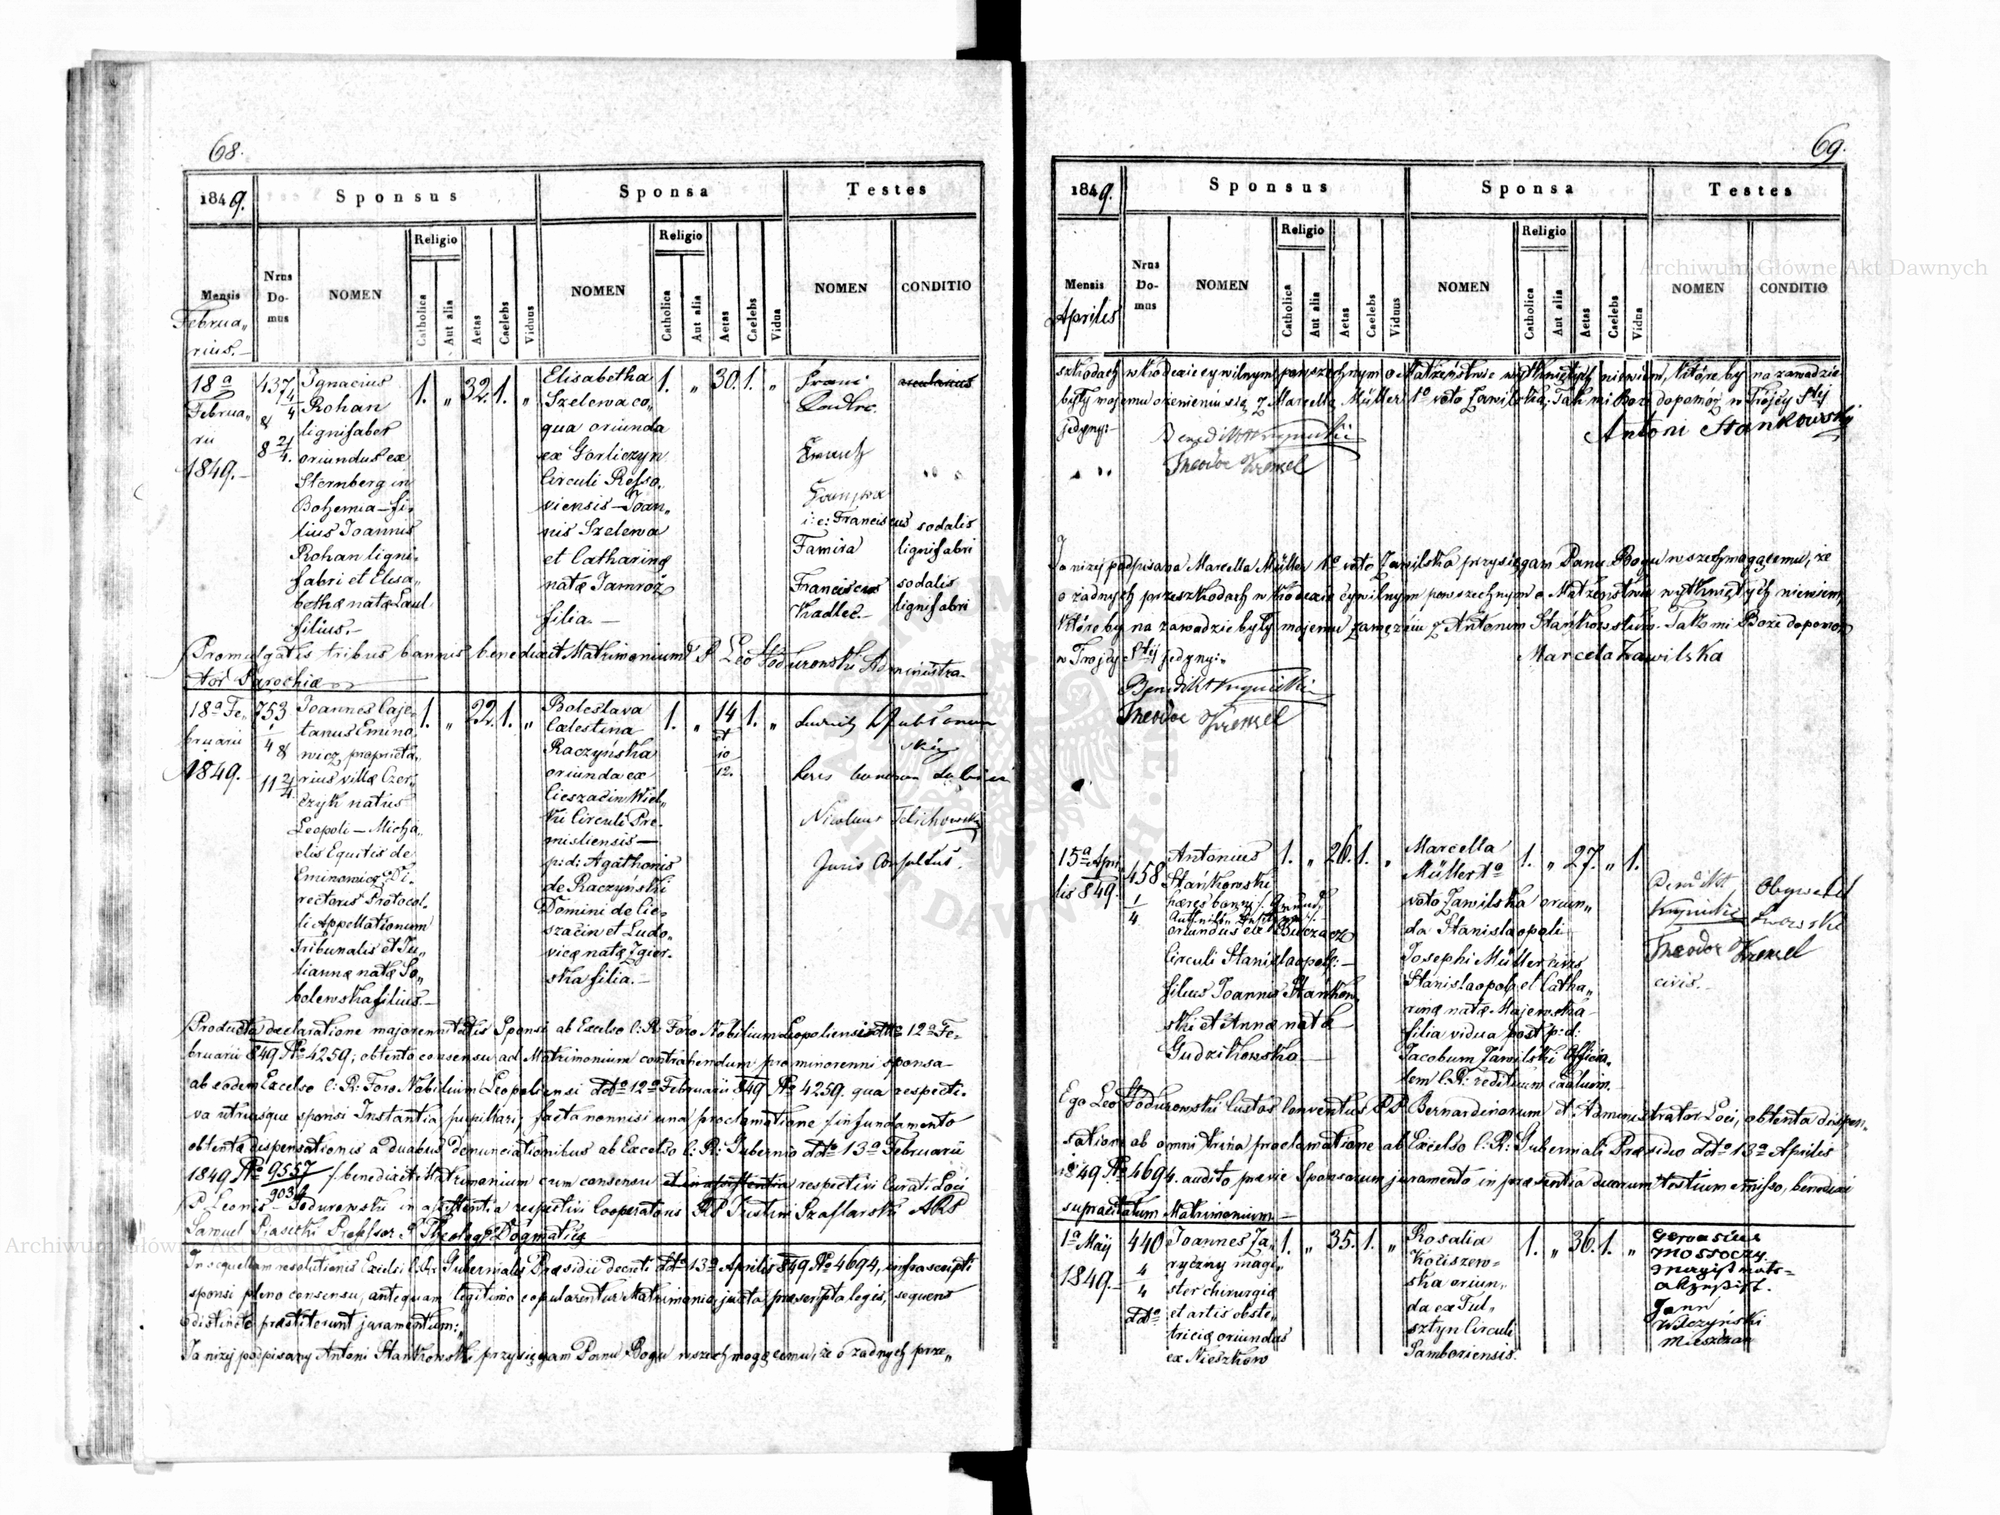 68.
1849.
Sponsus
Sponsa
Testes
Mensis
Nrus Domus
NOMEN
Religio
Catholica
Aut alia
Aetas
Caelebs
Viduus
NOMEN
Religio
Catholica
Aut alia
Aetas
Caelebs
Vidua
NOMEN
CONDITIO
Februa„
rius.–
18a
Februa„
rii
1849.–
437
Ignacius
Rohan
lignifaber
oriundus ex
Sternberg in
Bohemia – fi„
lius Joannis
Rohan ligni„
fabri et Elisa„
bethæ natæ Laul
filius.–
1. „ 32. 1. „
Elisabetha
Szelewa co„
qua oriunda
ex Gorliczyn
Circuli Resso„
viensis – Joan„
nis Szelewa
et Catharinæ
natæ Jamróz
filia.–
1. „ 30. 1. „
i: e: Franciscus sodalis
Tamira lignifabri
Franciscus sodalis
Kadlec.– lignifabri
Promulgatis tribus bannis benedixit Matrimonium P Leo Stodurowski Administra„
tor Parochiæ
18a Fe„
bruarii
1849.–
753
Joannes Caje„
tanus Emino„
wicz proprieta„
rius villæ Czer„
czyk natus
Leopoli – Micha„
elis Equitis de
Eminowicz Di„
rectoris Protocol„
li Appellationum
Tribunalis et Ju„
liannæ natæ So„
bolewska filius.–
1. „ 22. 1. „
Boleslava
Cælestina
Raczyńska
oriunda ex
Cieszacin Wiel„
ki Circuli Pre„
misliensis –
p: d: Agathonis
de Raczyński
Domini de Cie„
szacin et Ludo„
vicæ natæ Zgier„
ska filia.–
1. „ 14 1. „
et
10
12.
Ludwik Jabłonow
ski
Nicolaus
Juris Consultus.
Producta declaratione majorennitatis Sponsi ab Excelso C: R: Foro Nobilium Leopoliensi ddto 12a Fe„
bruarii 849 No 4259; obtento consensu ad Matrimonium contrahendum pro minorenni sponsa
ab eodem Excelso C: R: Foro Nobilium Leopoliensi ddto 12a Februarii 849 No 4259. qua respecti„
va utriusque sponsi Instantia pupillari; facta nonnisi una proclamatione / in fundamento
obtentæ dispensationis a duabus denunciationibus ab Excelso C: R: Gubernio ddto 13a Februarii
1849 No 9557 / benedixit Matrimonium cum consensu respectivi Curati Loci
P. Leonis Stodurowski in assistentia respectivi Cooperatoris RP Justini Szaflarski
Samuel Piasecki Professor S. Theologiæ Dogmaticæ
In sequellam resolutionis Excelsi C: R: Gubernialis Præsidii decreti ddto 13a Aprilis 849 No 4694, infrascripti
sponsi pleno consensu, antequam legitimo copularentur Matrimonio, juxta præscripta leges, sequens
distincte præstiterunt juramentum:„
Ja niżej podpisany Antoni Stankowski przysięgam Panu Bogu wszechmogącemu, że o żadnych prze„
69.
1849.
Sponsus
Sponsa
Testes
Mensis
Nrus Domus
NOMEN
Religio
Catholica
Aut alia
Aetas
Caelebs
Viduus
NOMEN
Religio
Catholica
Aut alia
Aetas
Caelebs
Vidua
NOMEN
CONDITIO
Aprilis
szkodach w kodexie cywilnym powszechnym o Matżeństwie wytkniętych niewiem, które by na zawadzie
były mojemu ożenieniu się z Marcellą Müller 1o voto Zawilską: Tak mi Boże dopomóż w Trójcy Stej
jedyny:–
Antoni Stankowski
Benedikt
Theodor Krenzel
Ja niżej podpisana Marcella Müller 1o voto Zawilska przysięgam Panu Bogu wszechmogącemu, że
o żadnych przeszkodach w kodexie cywilnym powszechnym o Matżeństwie wytkniętych niewiem,
które by na zawadzie były mojemu zamężciu z Antonim Stańkowskim. Tak mi Boże dopomóż
w Trójcy Stej jedyny:–
Marcela Zawilska
Benedikt
Theodor Krenzel
15a Apri„
lis 849.
458
Antonius
Stańkowski
oriundus ex Buczacz
Circuli Stanislaopoli:–
filius Joannis Stańkow„
ski et Annæ natæ
Gudzikowska
1. „ 26. 1. „
Marcella
Müller 1o
voto Zawilska oriun„
da Stanislaopoli
Josephi Müller civis
Stanislaopoli et Catha„
rinæ natæ Majewska
filia vidua post p: d:
Jacobum Zawilski Officia„
lem C: R: redituum
1. „ 27. „ 1.
Benedikt Obywatel
Lwowski
Theodor Krenzel
civis.–
Ego Leo Stodurowski Custos Conventus PP Bernardinorum et Administrator Loci, obtenta dispen„
satione ab omni trina proclamatione ab Excelso C: R: Guberniali Præsidio ddto 13a Aprilis
1849 No 4694. audito prævie Sponsorum juramento in præsentia duorum testium emisso, benedixi
supracitatum Matrimonium –
1a Maij
1849.–
440
ddto
Joannes Ja„
ryczny magi„
ster chirurgiæ
et artis obste„
triciæ oriundus
ex Nieszkow
1. „ 35. 1. „
Rosalia
Kociszew„
ska oriun„
da ex Ful„
sztyn Circuli
Samboriensis.
1. „ 36. 1. „
Gervasius
Mossoczy
Jann
Wilczyński
Mieszczan
Archiwum Główne Akt Dawnych
Archiwum Główne Akt Dawnych